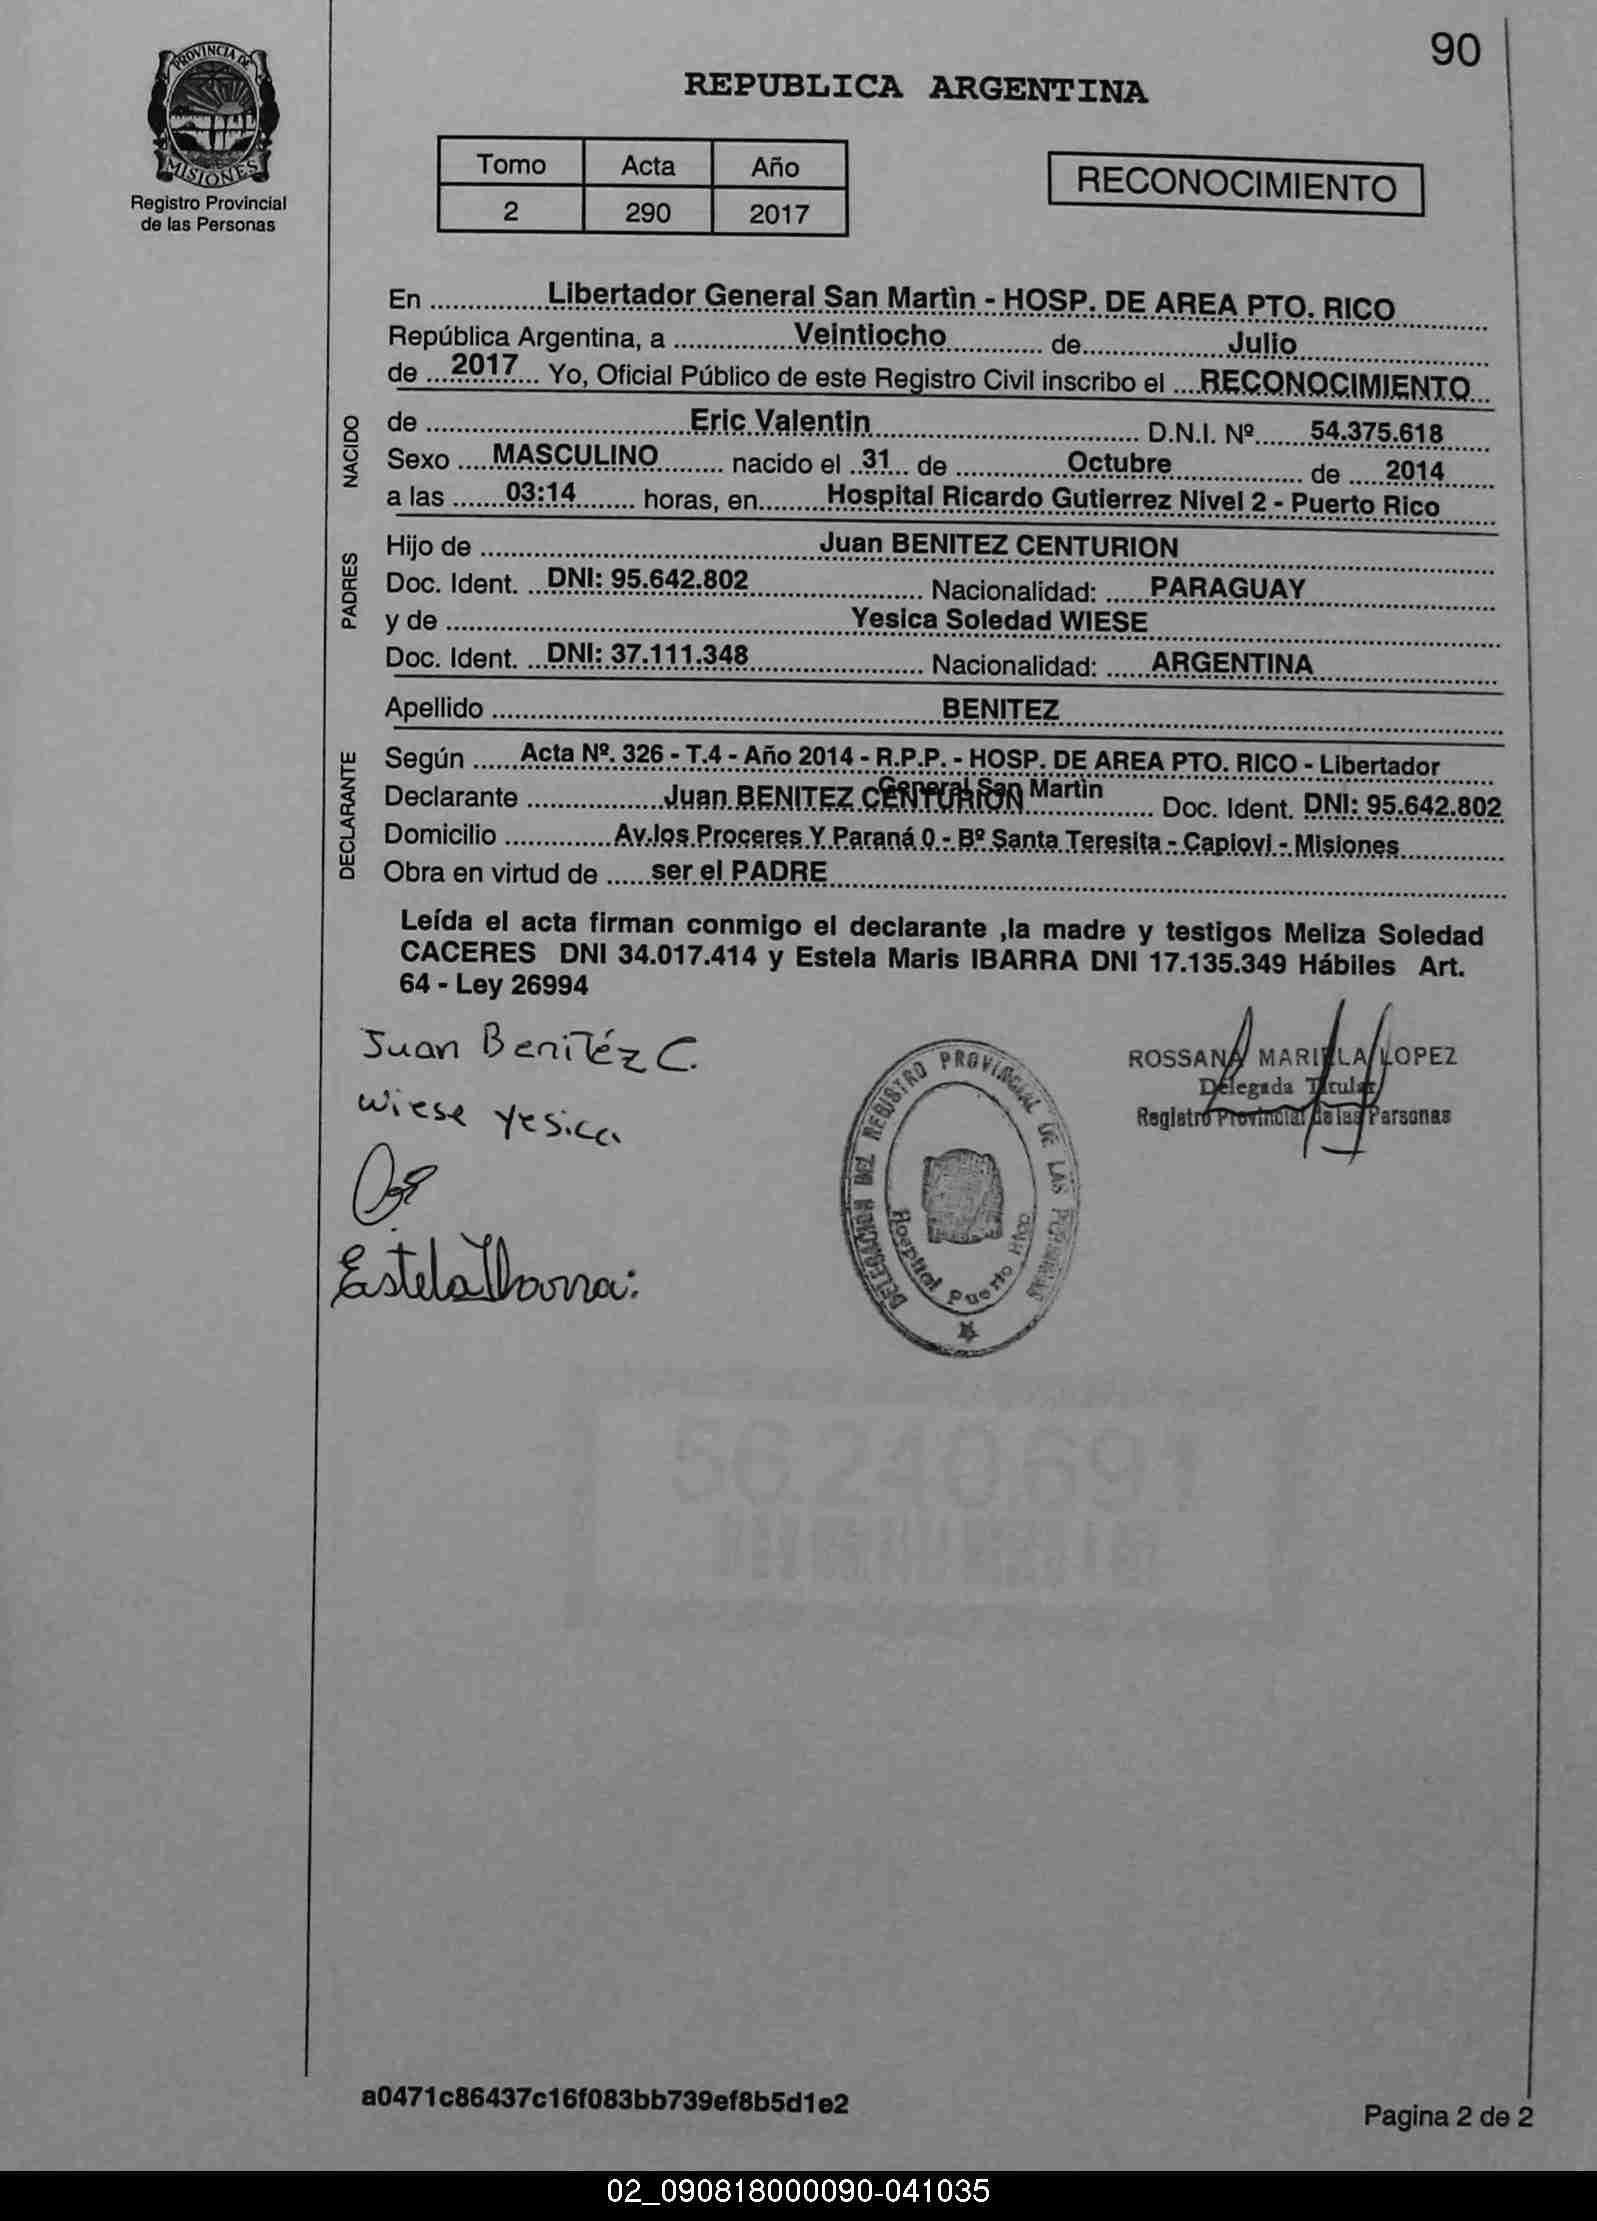 90
PROVINCIA DE
MISIONES
Registro Provincial
de las Personas
REPUBLICA ARGENTINA
Tomo Acta Año
2 290 2017
RECONOCIMIENTO
En Libertador General San Martìn - HOSP. DE AREA PTO. RICO
República Argentina, a Veintiocho de Julio
de 2017 Yo, Oficial Público de este Registro Civil inscribo el RECONOCIMIENTO
NACIDO
de Eric Valentin D.N.I. Nº 54.375.618
Sexo MASCULINO nacido el 31 de Octubre de 2014
a las 03:14 horas, en Hospital Ricardo Gutierrez Nivel 2 - Puerto Rico
PADRES
Hijo de Juan BENITEZ CENTURION
Doc. Ident. DNI: 95.642.802 Nacionalidad: PARAGUAY
y de Yesica Soledad WIESE
Doc. Ident. DNI: 37.111.348 Nacionalidad: ARGENTINA
Apellido BENITEZ
DECLARANTE
Según Acta Nº. 326 - T.4 - Año 2014 - R.P.P. - HOSP. DE AREA PTO. RICO - Libertador
General San Martìn
Declarante Juan BENITEZ CENTURION Doc. Ident. DNI: 95.642.802
Domicilio Av.los Proceres Y Paraná 0 - Bº Santa Teresita - Capiovi - Misiones
Obra en virtud de ser el PADRE
Leída el acta firman conmigo el declarante ,la madre y testigos Meliza Soledad
CACERES DNI 34.017.414 y Estela Maris IBARRA DNI 17.135.349 Hábiles Art.
64 - Ley 26994
Juan Benitéz C.
Wiese Yesica
Estela Ibarra:
DELEGACION DEL REGISTRO PROVINCIAL DE LAS PERSONAS
Hospital Puerto Rico
ROSSANA MARIELA LOPEZ
Delegada Titular
Registro Provincial de las Personas
56.240.691
a0471c86437c16f083bb739ef8b5d1e2
Pagina 2 de 2
02_090818000090-041035